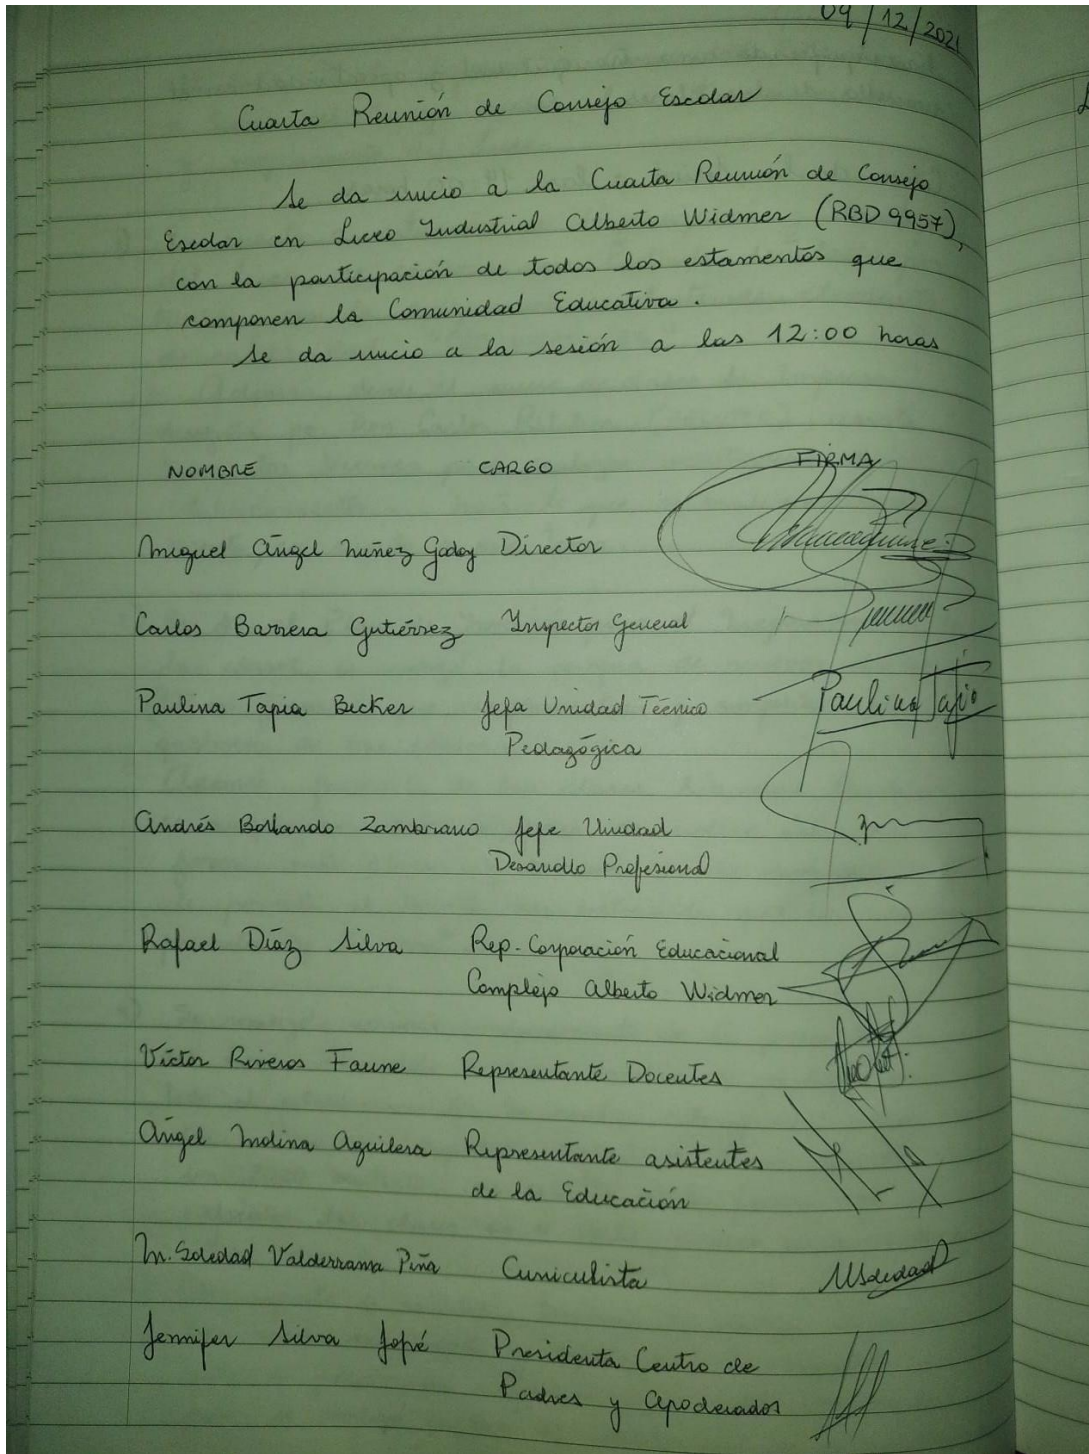 09/12/2021
Cuarta Reunión de Consejo Escolar
Se da inicio a la Cuarta Reunión de Consejo
Escolar en Liceo Industrial Alberto Widmer (RBD 9957),
con la participación de todos los estamentos que
componen la Comunidad Educativa.
Se da inicio a la sesión a las 12:00 horas
NOMBRE CARGO FIRMA
Miguel Ángel Nuñez Godoy Director
Carlos Barrera Gutiérrez Inspector General
Paulina Tapia Becker Jefa Unidad Técnico Paulina Tapia
Pedagógica
Andrés Zambrano Jefe Unidad
Desarrollo Profesional
Rafael Díaz Silva Rep. Corporación Educacional
Complejo Alberto Widmer
Víctor Riveros Faune Representante Docentes
Angel Molina Aguilera Representante asistentes
de la Educación
M. Soledad Valderrama Piña Curriculista MSoledad
Jennifer Silva Jopé Presidenta Centro de
Padres y Apoderados